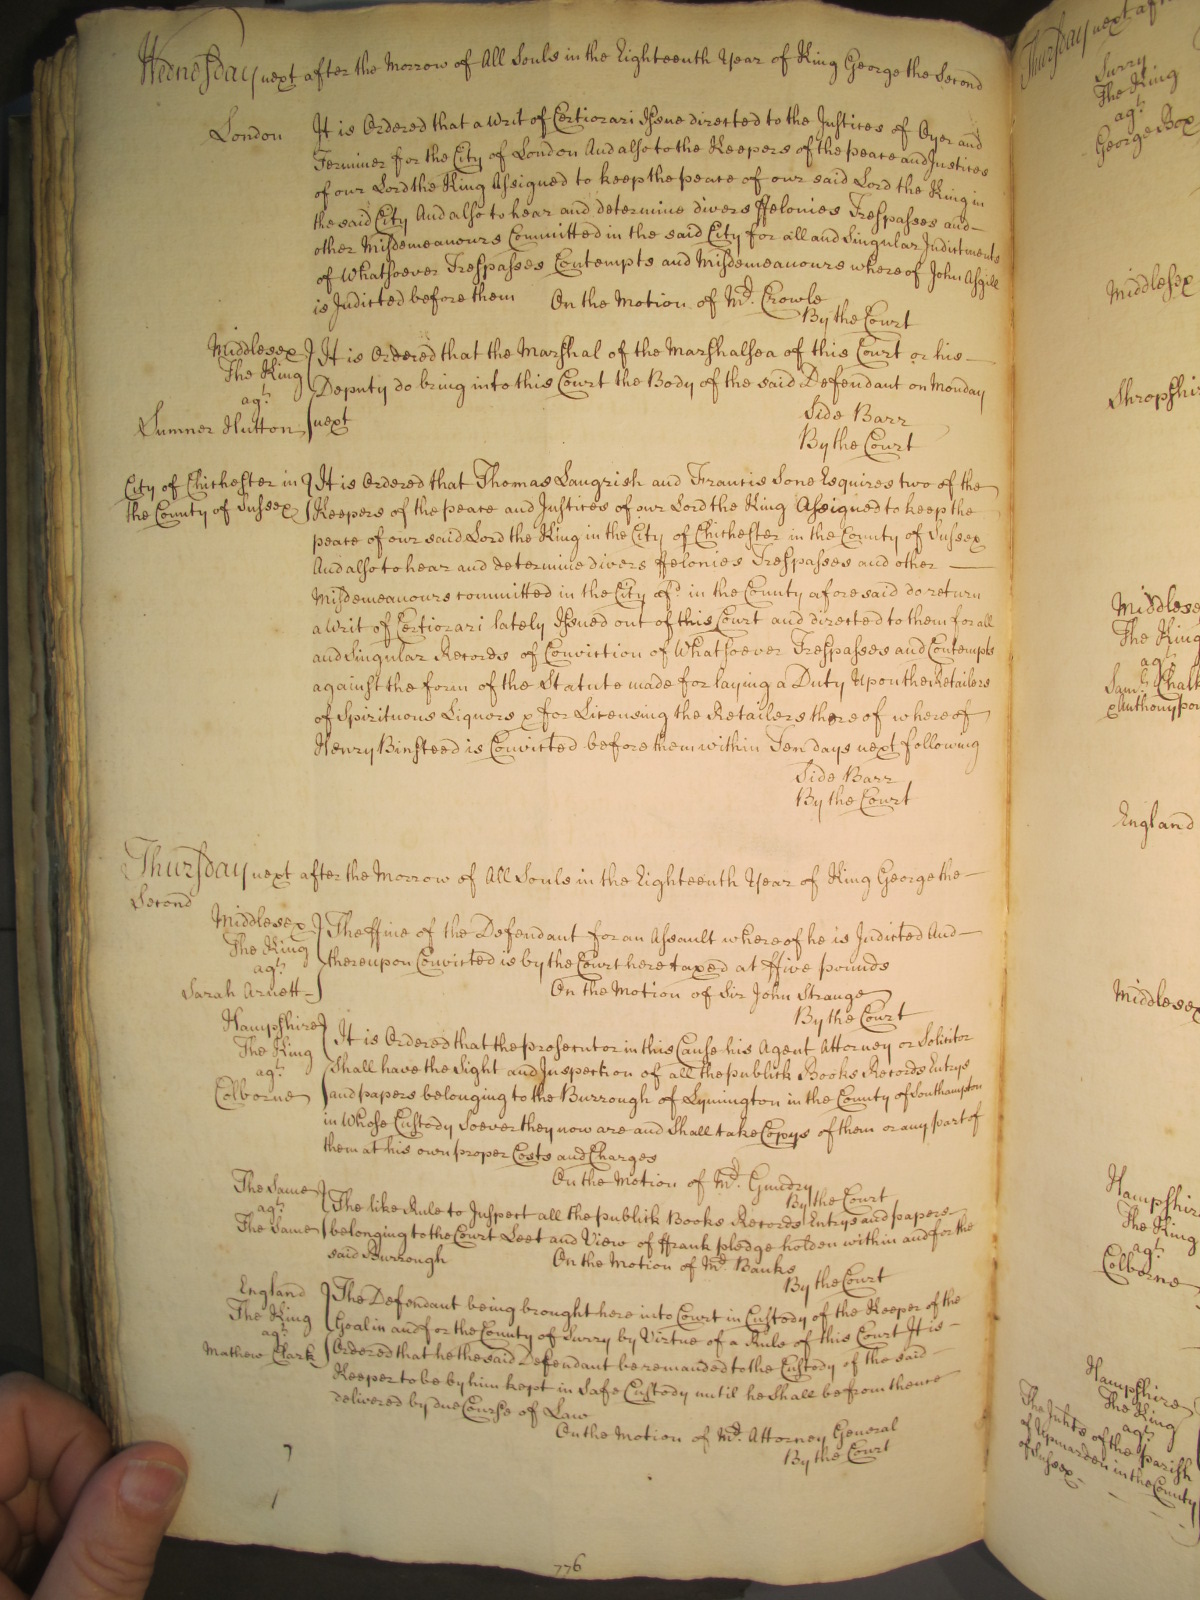 Wednesday next after the Morrow of All Souls in the Eighteenth Year of King George the Second
London
It is Ordered that a Writ of Certiorari Issue directed to the Justices of Oyer and
Terminer for the City of London And also to the Keepers of the peace and Justices
of our Lord the King Assigned to keep the peace of our said Lord the King in
the said City And also to hear and determine divers ffelonies Trespasses and
other Misdemeanours Committed in the said City for all and Singular Indictments
of Whatsoever Trespasses Contempts and Misdemeanours whereof John Asgill
is Indicted before them On the Motion of Mr. Crowle
By the Court
Middlesex
The King
agt.
Sumner Hutton
It is Ordered that the Marshal of the Marshalsea of this Court or his
Deputy do bring into this Court the Body of the said Defendant on Monday
next
Side Barr
By the Court
City of Chichester in
the County of Sussex
It is Ordered that Thomas Langrish and Francis Sone Esquires two of the
Keepers of the peace and Justices of our Lord the King Assigned to keep the
peace of our said Lord the King in the City of Chichester in the County of Sussex
And also to hear and determine divers ffelonies Trespasses and other
Misdemeanours committed in the City afsd. in the County aforesaid do return
a Writ of Certiorari lately Issued out of this Court and directed to them for all
and Singular Records of Conviction of Whatsoever Trespasses and Contempts
against the form of the Statute made for laying a Duty Upon the Retailers
of Spirituous Liquors & for Licensing the Retailers thereof whereof
Henry Binsteed is Convicted before them within Ten days next following
Side Barr
By the Court
Thursday next after the Morrow of All Souls in the Eighteenth Year of King George the
Second
Middlesex
The King
agt.
Sarah Arnett
The ffine of the Defendant for an Assault whereof he is Indicted And
thereupon Convicted is by the Court here taxed at ffive pounds
On the Motion of Sir John Strange
By the Court
Hampshire
The King
agt.
Colborne
It is Ordered that the prosecutor in this Cause his Agent Attorney or Solicitor
Shall have the Sight and Inspection of all the publick Books Records Entrys
and papers belonging to the Burrough of Lymington in the County of Southampton
in Whose Custody Soever they now are and Shall take Copys of them or any part of
them at his own proper Costs and Charges
On the Motion of Mr. Gundry
By the Court
The Same
agt.
The Same
The like Rule to Inspect all the publick Books Records Entrys and papers
belonging to the Court Leet and View of ffrank pledge holden within and for the
said Burrough On the Motion of Mr. Banks
By the Court
England
The King
agt.
Mathew Clark
The Defendant being brought here into Court in Custody of the Keeper of the
Goal in and for the County of Surry by Virtue of a Rule of this Court It is
Ordered that he the said Defendant be remanded to the Custody of the said
Keeper to be by him kept in Safe Custody until he Shall be from thence
delivered by due Course of Law
On the Motion of Mr. Attorney General
By the Court
776
Thursday next
Surry
The King
agt.
George Box
Middlesex
Shropshi
Middlese
The King
agt.
Saml. Chalk
& Anthony
England
Middlesex
Hampshire
The King
agt.
Colborne
Hampshire
The King
agt.
The Inhts. of the parish
of Upmarden in the County
of Sussex